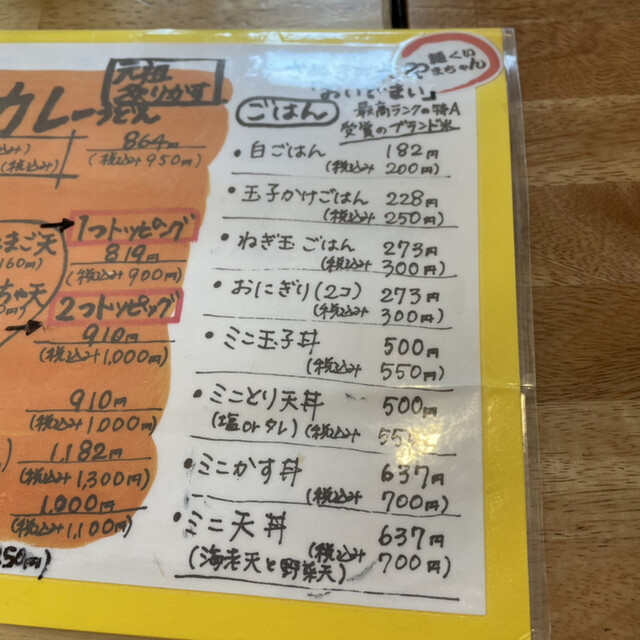 麺くい
やまちゃん
元祖
祭りかす
カレーうどん
864円
(税込み950円)
1つトッピング
819円
(税込み900円)
2つトッピング
910円
(税込み1,000円)
910円
(税込み1,000円)
1,182円
(税込み1,300円)
1,000円
(税込み1,100円)
たまご天
160円)
ちゃ天
「おいでまい」
ごはん
最高ランクの特A
受賞のブランド米
・白ごはん 182円
(税込み 200円)
・玉子かけごはん 228円
(税込み 250円)
・ねぎ玉ごはん 273円
(税込み 300円)
・おにぎり(2コ) 273円
(税込み 300円)
・ミニ玉子丼 500円
(税込み 550円)
・ミニとり天丼 500円
(塩orタレ) (税込み 550円)
・ミニかす丼 637円
(税込み 700円)
・ミニ天丼 637円
(海老天と野菜天) (税込み 700円)